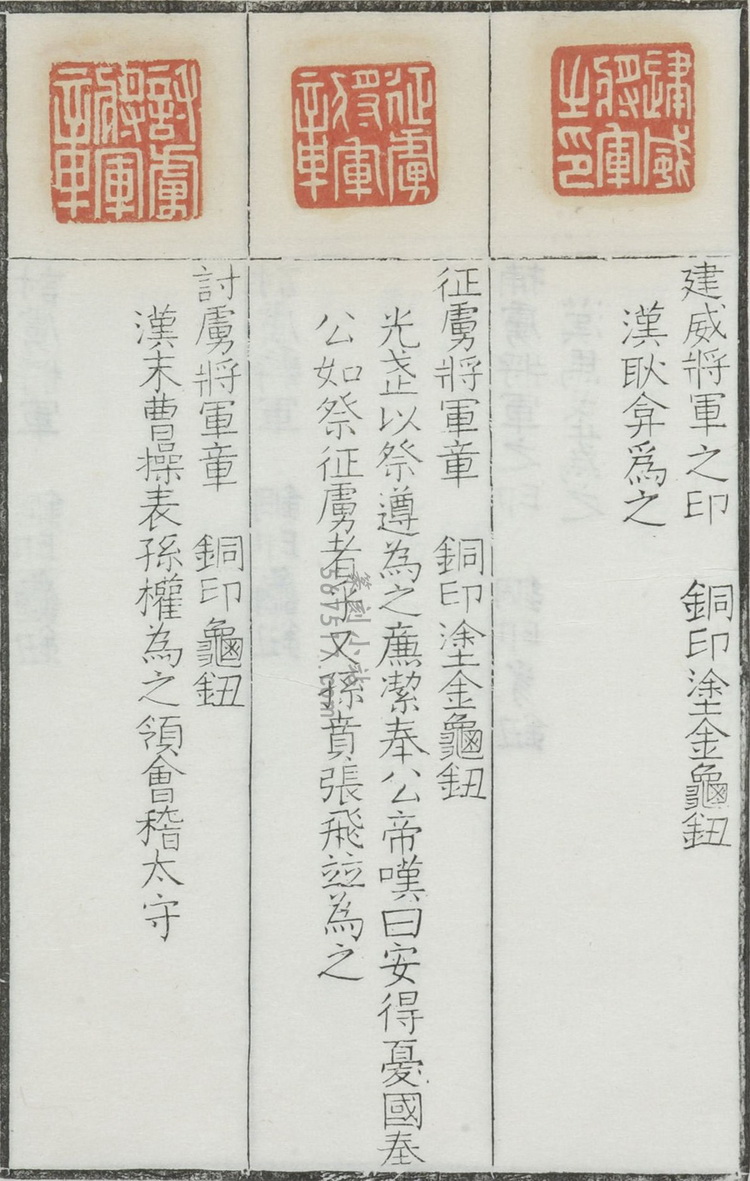 建威
將軍
之印
建威將軍之印 銅印塗金龜鈕
漢耿弇爲之
征虜
將軍
章
征虜將軍章 銅印塗金龜鈕
光武以祭遵為之廉潔奉公帝嘆曰安得憂國奉
公如祭征虜者乎又孫賁張飛竝為之
討虜
將軍
章
討虜將軍章 銅印龜鈕
漢末曹操表孫權為之領會稽太守